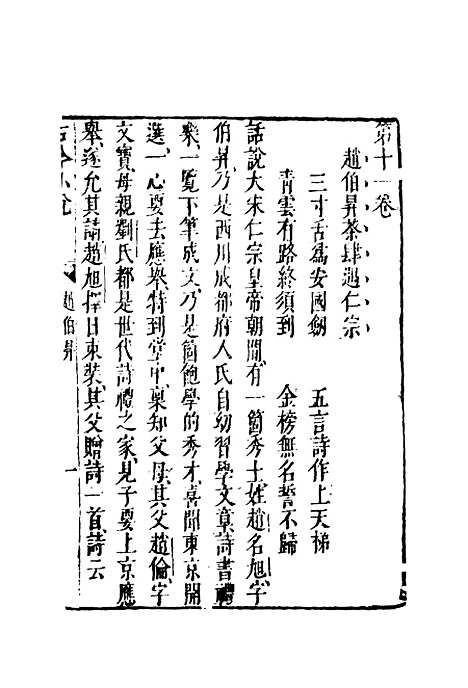 第十一卷
趙伯昇茶肆遇仁宗
三寸舌爲安國劒　五言詩作上天梯
青雲有路終須到　金榜無名誓不歸
話說大宋仁宗皇帝朝間有一箇秀士姓趙名旭字
伯昇乃是西川成都府人氏自幼習學文章詩書禮
樂一覽下筆成文乃是箇飽學的秀才喜聞東京開
選一心要去應舉特到堂中稟知父母其父趙倫字
文寶母親劉氏都是世代詩禮之家見子要上京應
舉遂允其請趙旭擇日束裝其父贈詩一首詩云
古今小說　趙伯昇　一